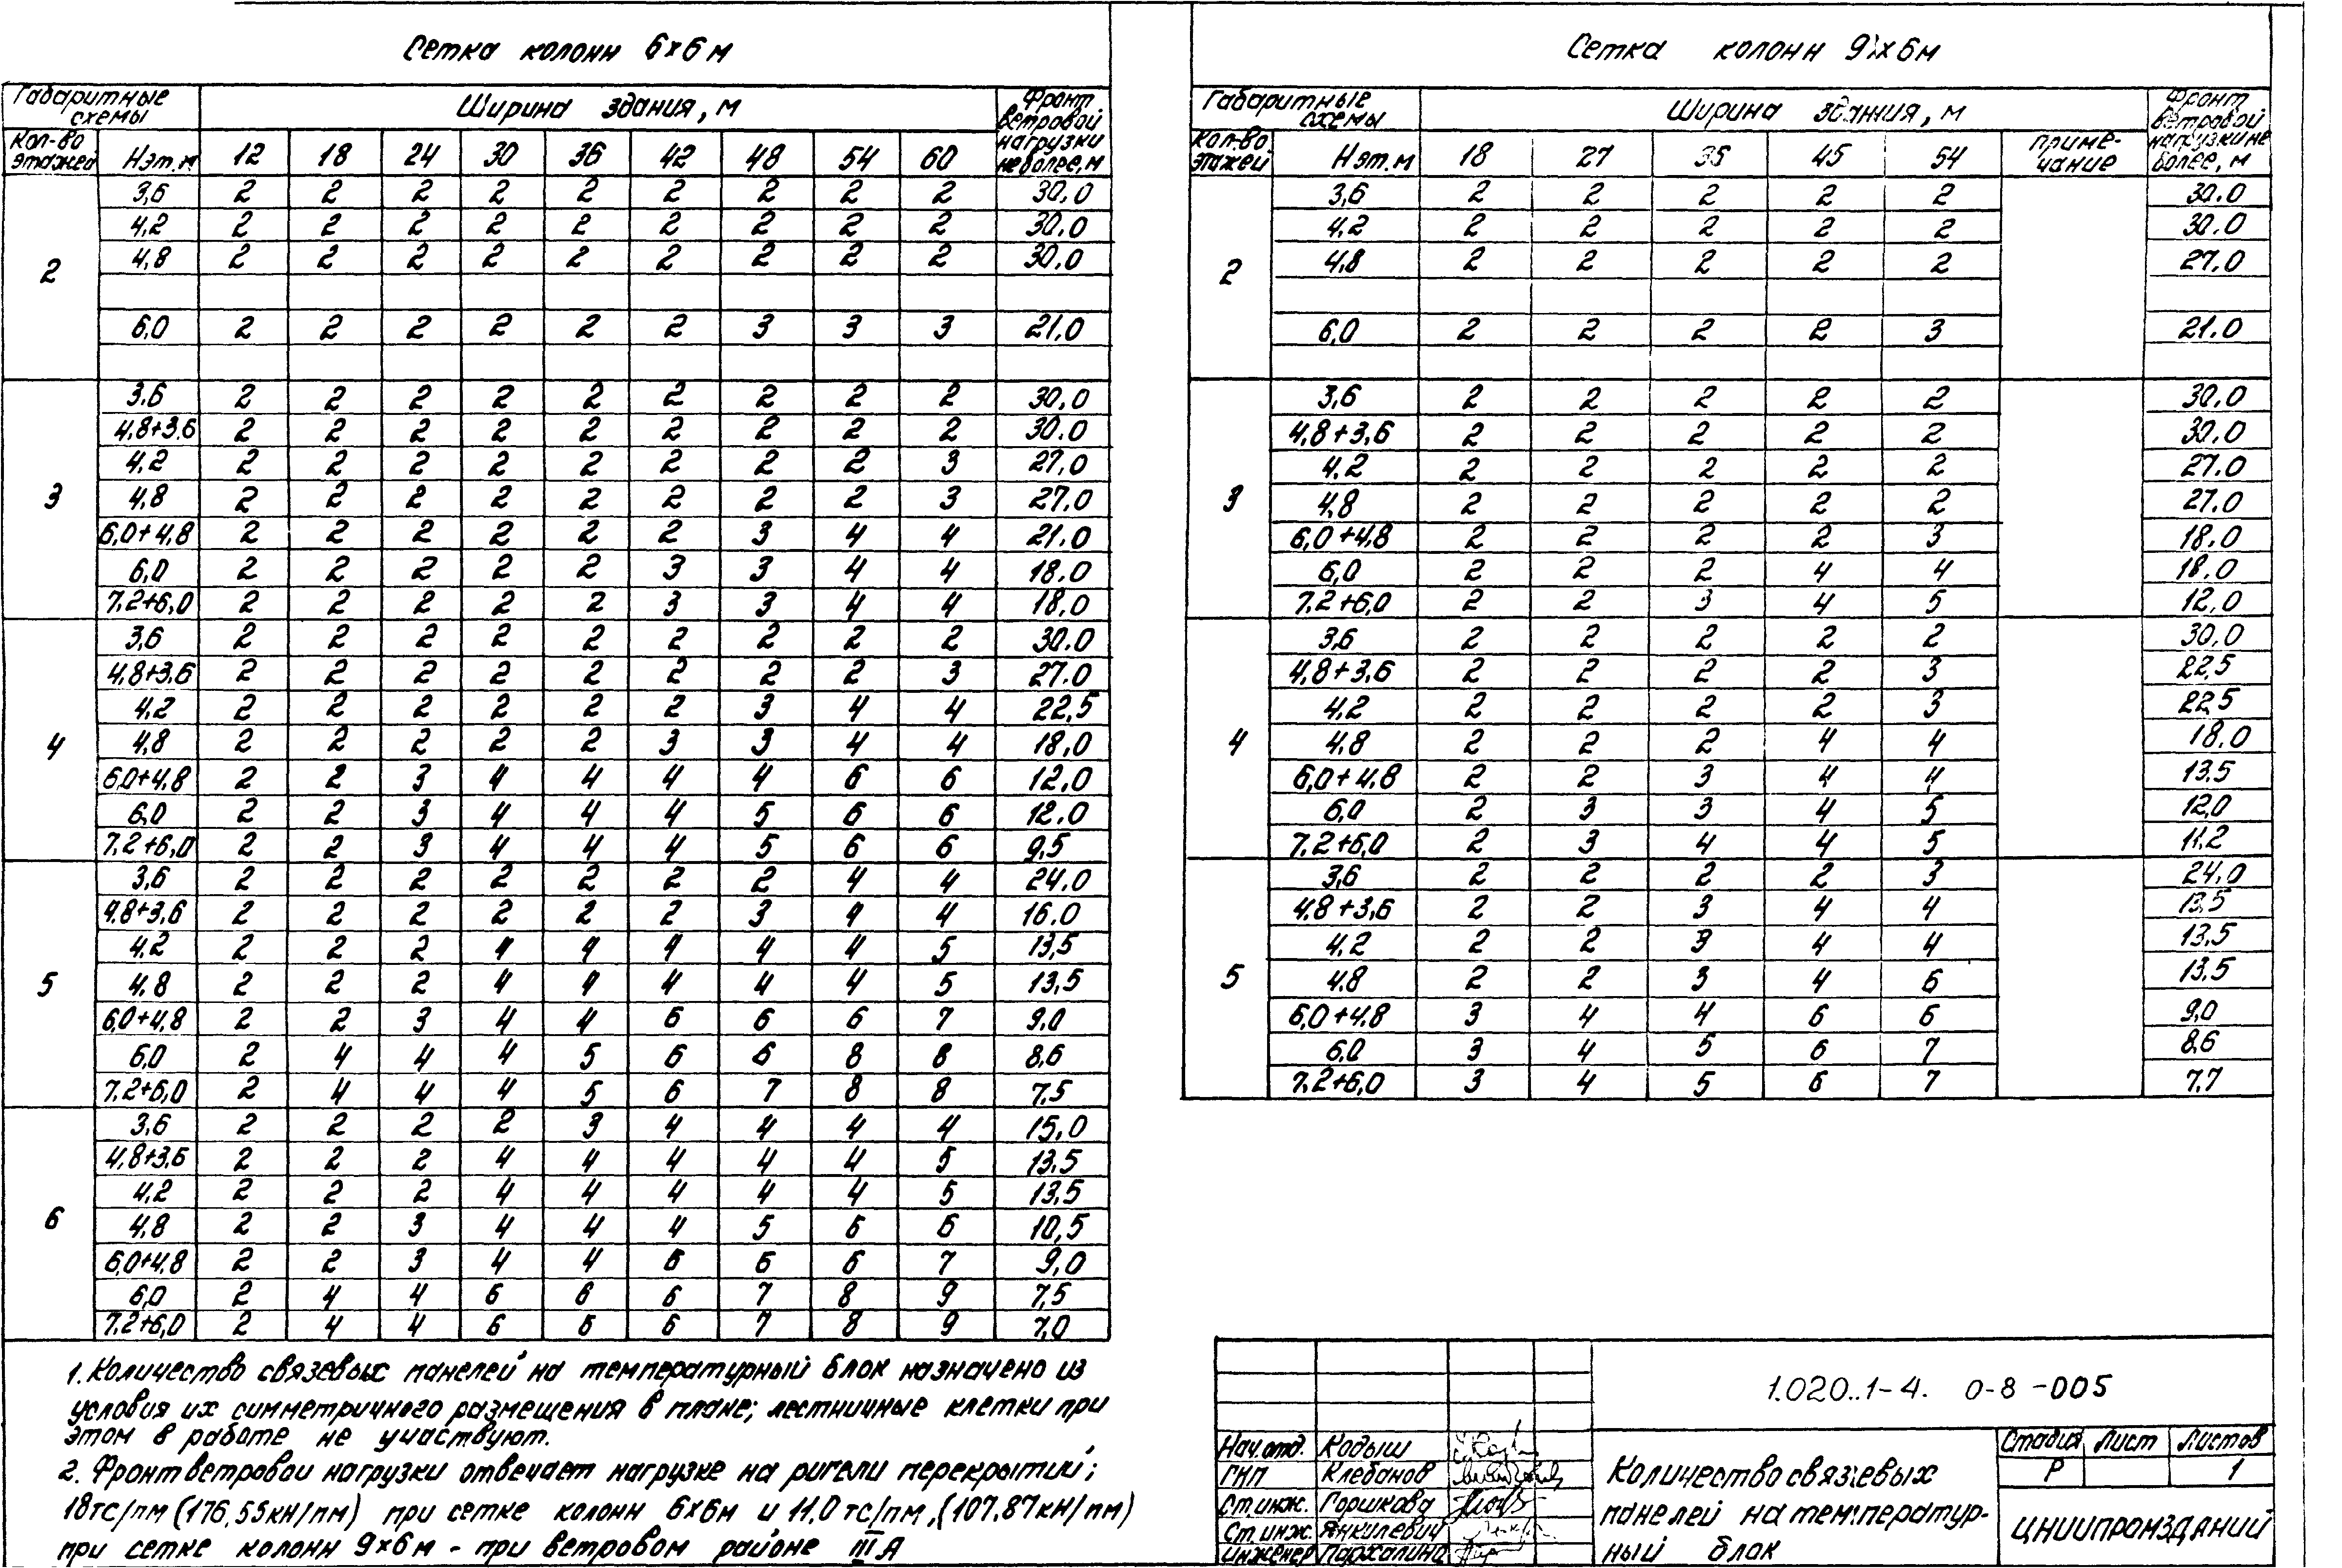 Сетка колонн 6х6м
Габаритные схемы Ширина здания, м Фронт ветровой нагрузки не более, м
Кол-во этажей Нэт.м 12 18 24 30 36 42 48 54 60
2
3,6 2 2 2 2 2 2 2 2 2 30,0
4,2 2 2 2 2 2 2 2 2 2 30,0
4,8 2 2 2 2 2 2 2 2 2 30,0
6,0 2 2 2 2 2 2 3 3 3 21,0
3
3,6 2 2 2 2 2 2 2 2 2 30,0
4,8+3,6 2 2 2 2 2 2 2 2 2 30,0
4,2 2 2 2 2 2 2 2 2 3 27,0
4,8 2 2 2 2 2 2 2 2 3 27,0
6,0+4,8 2 2 2 2 2 2 3 4 4 21,0
6,0 2 2 2 2 2 3 3 4 4 18,0
7,2+6,0 2 2 2 2 2 3 3 4 4 18,0
4
3,6 2 2 2 2 2 2 2 2 2 30,0
4,8+3,6 2 2 2 2 2 2 2 2 3 27,0
4,2 2 2 2 2 2 2 3 4 4 22,5
4,8 2 2 2 2 2 3 3 4 4 18,0
6,0+4,8 2 2 3 4 4 4 4 6 6 12,0
6,0 2 2 3 4 4 4 5 6 6 12,0
7,2+6,0 2 2 3 4 4 4 5 6 6 9,5
5
3,6 2 2 2 2 2 2 2 4 4 24,0
4,8+3,6 2 2 2 2 2 2 3 4 4 16,0
4,2 2 2 2 4 4 4 4 4 5 13,5
4,8 2 2 2 4 4 4 4 4 5 13,5
6,0+4,8 2 2 3 4 4 6 6 6 7 9,0
6,0 2 4 4 4 5 6 6 8 8 8,6
7,2+6,0 2 4 4 4 5 6 7 8 8 7,5
6
3,6 2 2 2 2 3 4 4 4 4 15,0
4,8+3,6 2 2 2 4 4 4 4 4 5 13,5
4,2 2 2 2 4 4 4 4 4 5 13,5
4,8 2 2 3 4 4 4 5 6 6 10,5
6,0+4,8 2 2 3 4 4 6 6 6 7 9,0
6,0 2 4 4 6 6 6 7 8 9 7,5
7,2+6,0 2 4 4 6 6 6 7 8 9 7,0
1. Количество связевых панелей на температурный блок назначено из
условия их симметричного размещения в плане; лестничные клетки при
этом в работе не участвуют.
2. Фронт ветровой нагрузки отвечает нагрузке на ригели перекрытий;
18тс/пм (176,53кН/пм) при сетке колонн 6х6м и 11,0тс/пм, (107,87кН/пм)
при сетке колонн 9х6м - при ветровом районе III А
Сетка колонн 9х6м
Габаритные схемы Ширина здания, м Фронт ветровой нагрузки не более, м
Кол-во этажей Нэт.м 18 27 35 45 54 Приме-чание
2
3,6 2 2 2 2 2 30,0
4,2 2 2 2 2 2 30,0
4,8 2 2 2 2 2 27,0
6,0 2 2 2 2 3 21,0
3
3,6 2 2 2 2 2 30,0
4,8+3,6 2 2 2 2 2 30,0
4,2 2 2 2 2 2 27,0
4,8 2 2 2 2 2 27,0
6,0+4,8 2 2 2 2 3 18,0
6,0 2 2 2 4 4 18,0
7,2+6,0 2 2 3 4 5 12,0
4
3,6 2 2 2 2 2 30,0
4,8+3,6 2 2 2 2 3 22,5
4,2 2 2 2 2 3 22,5
4,8 2 2 2 4 4 18,0
6,0+4,8 2 2 3 4 4 13,5
6,0 2 3 3 4 5 12,0
7,2+6,0 2 3 4 4 5 11,2
5
3,6 2 2 2 2 3 24,0
4,8+3,6 2 2 3 4 4 13,5
4,2 2 2 3 4 4 13,5
4,8 2 2 3 4 6 13,5
6,0+4,8 3 4 4 6 6 9,0
6,0 3 4 5 6 7 8,6
7,2+6,0 3 4 5 6 7 7,7
1.020..1-4. 0-8-005
Нач.отд. Кодыш
ГИП Клебанов
Ст.инж. Горшкова
Ст.инж. Янкилевич
Инженер Пархалина
Количество связевых
панелей на температур-
ный блок
Стадия Лист Листов
Р 1
ЦНИИПРОМЗДАНИЙ